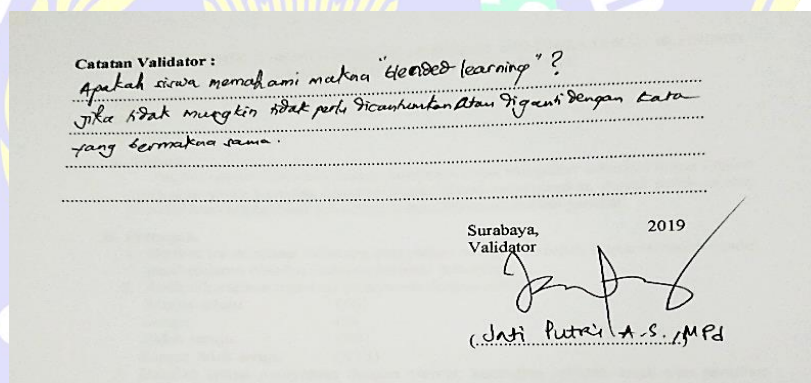 Catatan Validator :
Apakah siswa memahami makna "blended learning" ?
jika tidak mungkin tidak perlu dicantumkan atau diganti dengan kata
yang bermakna sama.
Surabaya, 2019
Validator
(Jati Putri A.S., MPd